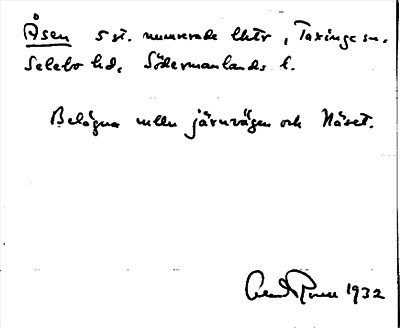 Åsen 5 st. numrerade lhtr, Taxinge sn.
Selebo hd, Södermanlands l.
Belägna mellan järnvägen och Näset.
1932